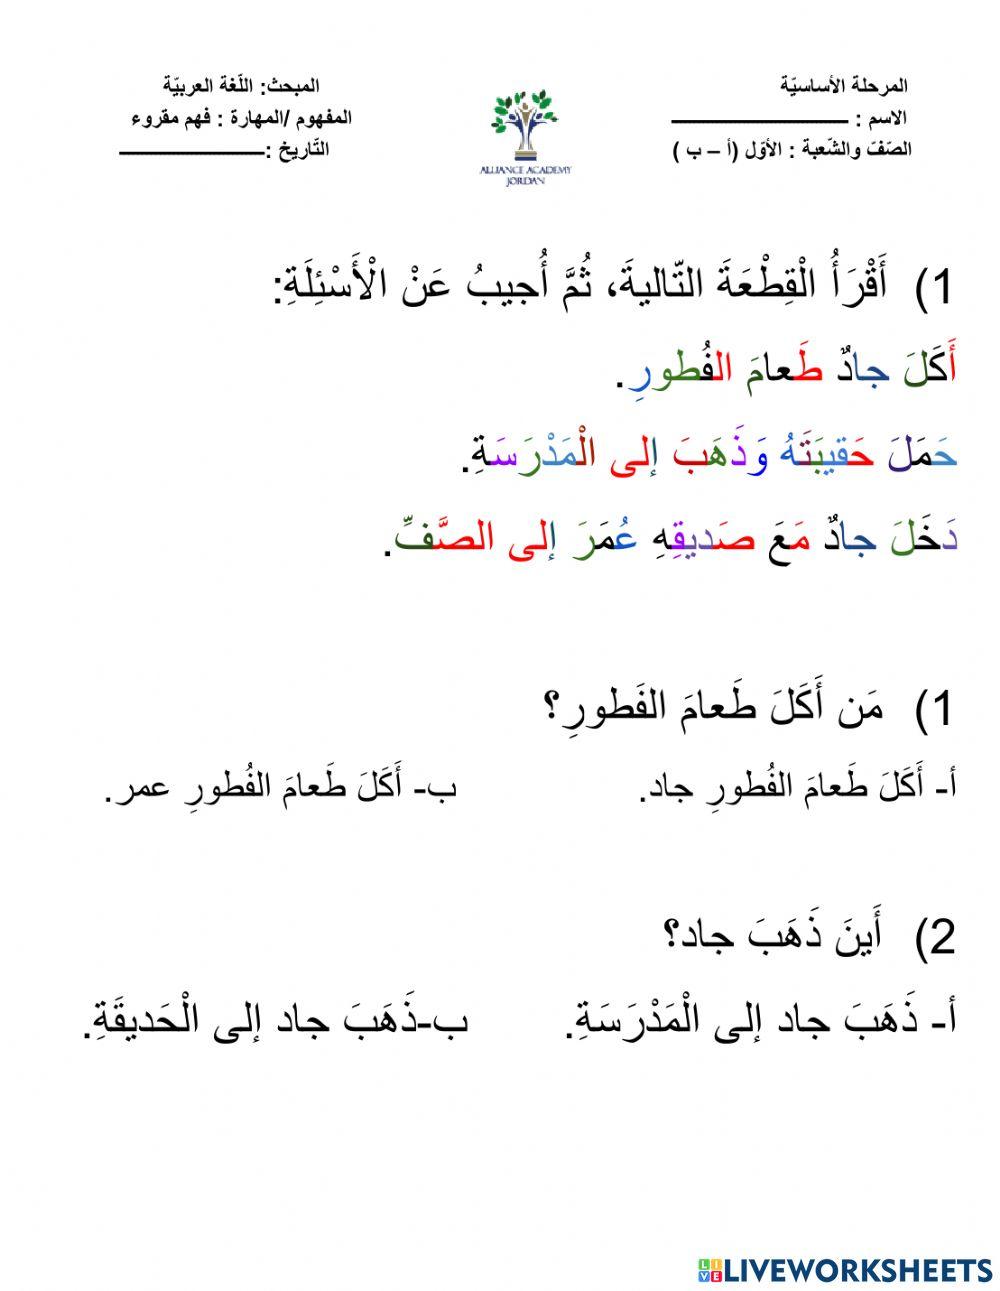 المرحلة الأساسيّة
الاسم : ــــــــــــــــــــــــــــــ
الصّفّ والشّعبة : الأوّل (أ – ب )
ALLIANCE ACADEMY
JORDAN
المبحث: اللّغة العربيّة
المفهوم /المهارة : فهم مقروء
التّاريخ :ــــــــــــــــــــــــ
1) أَقْرَأُ الْقِطْعَةَ التّاليةَ، ثُمَّ أُجيبُ عَنْ الْأَسْئِلَةِ:
أَكَلَ جادٌ طَعامَ الفُطورِ.
حَمَلَ حَقيبَتَهُ وَذَهَبَ إلى الْمَدْرَسَةِ.
دَخَلَ جادٌ مَعَ صَديقِهِ عُمَرَ إلى الصَّفِّ.
1) مَن أَكَلَ طَعامَ الفَطورِ؟
أ- أَكَلَ طَعامَ الفُطورِ جاد. ب- أَكَلَ طَعامَ الفُطورِ عمر.
2) أَينَ ذَهَبَ جاد؟
أ- ذَهَبَ جاد إلى الْمَدْرَسَةِ. ب-ذَهَبَ جاد إلى الْحَديقَةِ.
LIVE LIVEWORKSHEETS